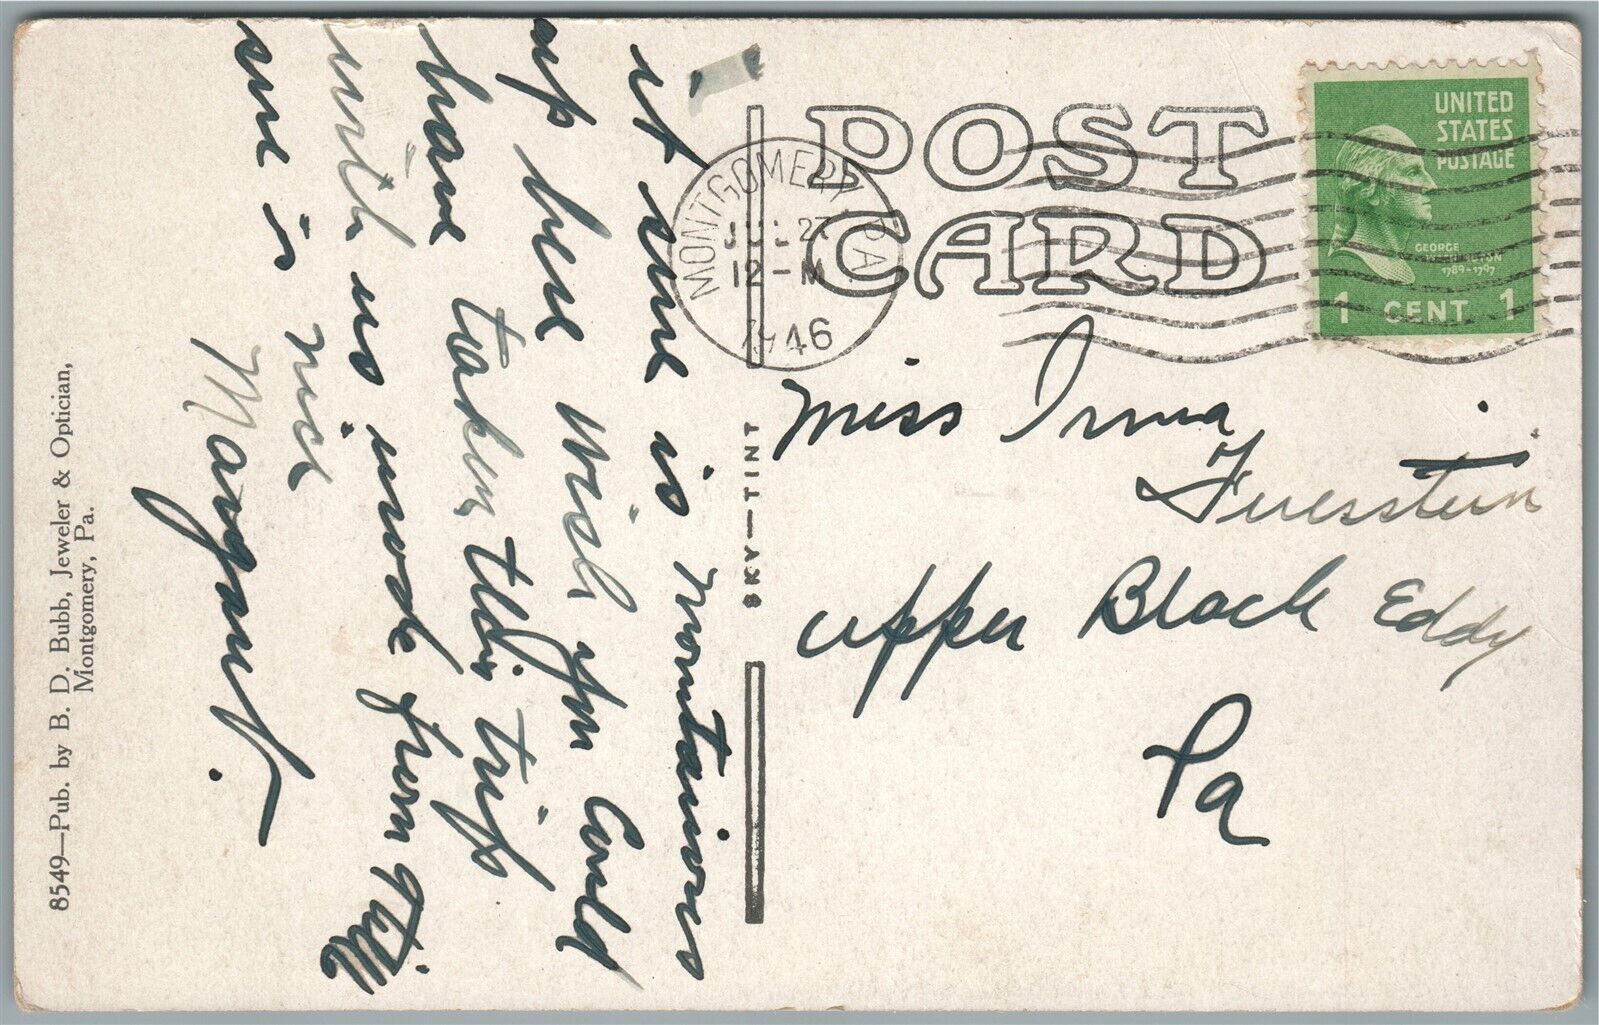 it sure is mountainous
up here wish you could
have taken this trip
with us
sure is nice
Margaret.
POST
CARD
MONTGOMERY PA
JUL 27
12 - M
1946
UNITED
STATES
POSTAGE
GEORGE
WASHINGTON
1789-1797
1 CENT 1
Miss Irma
Fuesstein
Upper Black Eddy
Pa
SKY-TINT
8549—Pub. by B. D. Bubb, Jeweler & Optician,
Montgomery, Pa.